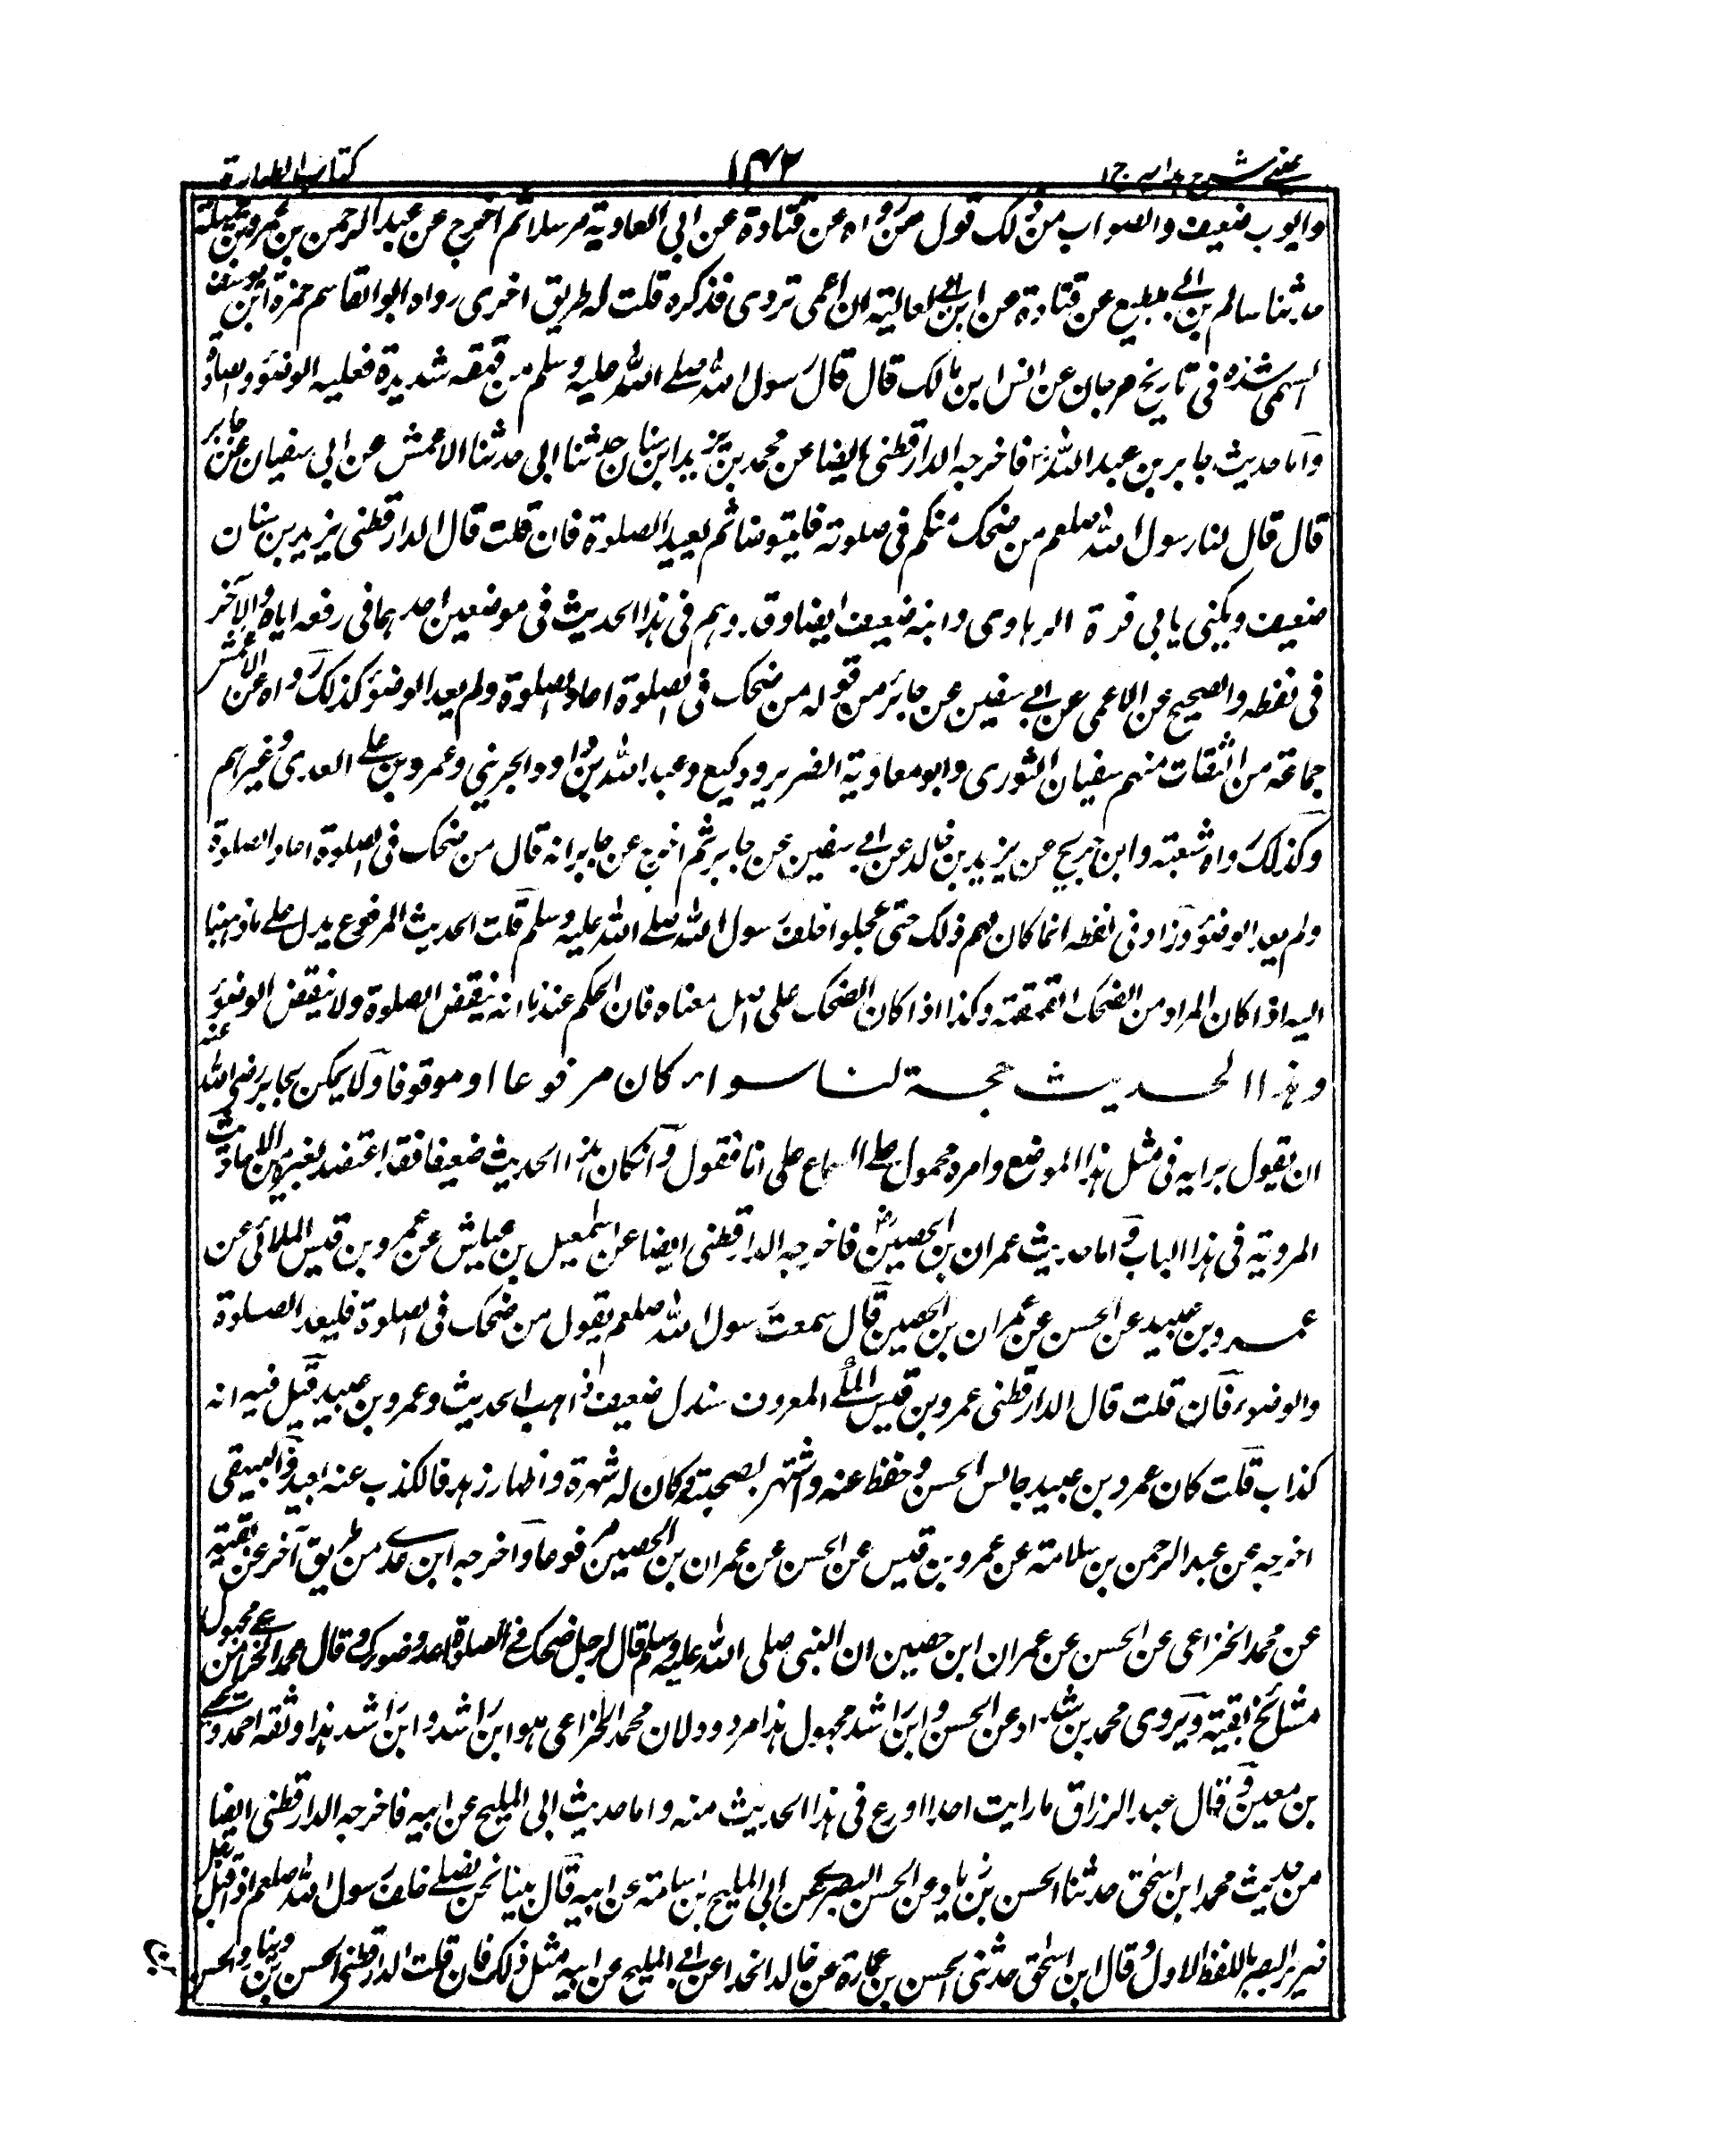 عینی شرح هدایه ج۱ ۱۴۲ کتاب الطهارة
وایوب ضعیف والصواب من ذلک قول من رواه عن قتادة عن ابی العاویة مرسلا ثم اخرج عن عبد الرحمن بن عمرو بن جبلة
حدثنا سالم بن ابی مطیع عن قتادة عن ابن ابی العالیة ان اعمی تردی فذکره قلت له طریق اخری رواه ابو القاسم حمزة ابن یوسف
السهمی فی تاریخ جرجان عن انس ابن مالک قال قال رسول الله صلے الله علیه وسلم من قهقه شدیدة فعلیه الوضوء والصلوة
واما حدیث جابر بن عبد الله فاخرجه الدارقطنی ایضا عن محمد بن یزید ابن سنان حدثنا ابی حدثنا الاعمش عن ابی سفیان عن جابر
قال قال لنا رسول الله صلعم من ضحک منکم فی صلوته فلیتوضا ثم لیعید الصلوة فان قلت قال الدارقطنی یزید بن سنان
ضعیف ویکنی بابی فرة الرهاوی وابنه ضعیف ایضا وقد وهم فی هذا الحدیث فی موضعین احدهما فی رفعه ایاه والآخر
فی لفظه والصحیح عن الاعمی عن ابی سفین عن جابر من قوله من ضحک فی الصلوة اعاد الصلوة ولم یعد الوضوء کذلک رواه عن الاعمش
جماعة من الثقات منهم سفیان الثوری وابو معاویة الضریر ووکیع وعبد الله بن داود الجریبی وعمرو بن علے العدی وغیرهم
وکذلک رواه شعبة وابن جریج عن یزید بن خالد عن ابی سفین عن جابر ثم اخرج عن جابر انه قال من ضحک فی الصلوة اعاد الصلوة
ولم یعد الوضوء وزاد فی لفظه انما کان لهم ذلک حتی عجلوا خلف رسول الله صلے الله علیه وسلم قلت الحدیث المرفوع یدل علے ما ذهبنا
الیه اذا کان المراد من الضحک القهقهة وکذا اذا کان الضحک علی اصل معناه فان الحکم عندنا انه ینقض الصلوة ولا ینقض الوضوء
وهذا الحدیث حجة لنا سواء کان مرفوعا او موقوفا ولا یمکن لجابر رضی الله عنه
ان یقول برایه فی مثل هذا الموضع وامره محمول علے السماع علی انا نقول وان کان هذا الحدیث ضعیفا فقد اعتضد بغیره من الاحادیث
المرویة فی هذا الباب واما حدیث عمران بن الحصین رض فاخرجه الدارقطنی ایضا عن اسمعیل بن عیاش عن عمرو بن قیس الملائی عن
عمرو بن عبید عن الحسن عن عمران بن الحصین قال سمعت رسول الله صلعم یقول من ضحک فی الصلوة فلیعد الصلوة
والوضوء فان قلت قال الدارقطنی عمرو بن قیس المعروف سندل ضعیف ذاهب الحدیث وعمرو بن عبید قیل فیه انه
کذاب قلت کان عمرو بن عبید جالس الحسن وحفظ عنه واشتهر بصحبته وکان له شهرة واظهار زهد فالکذب عنه بعید والبیهقی
اخرجه عن عبد الرحمن بن سلامة عن عمرو بن قیس عن الحسن عن عمران بن الحصین مرفوعا واخرجه ابن عدے من طریق آخر عن بقیة
عن محمد الخزاعی عن الحسن عن عمران ابن حصین ان النبی صلی الله علیه وسلم قال لرجل ضحک فی الصلوة اعد وضوءک وقال محمد الخزاعی مجهول من
مشائخ بقیة ویروی محمد بن راشد عن الحسن وابن راشد مجهول هذا مردود لان محمد الخزاعی هو ابن راشد وابن راشد هذا وثقه احمد ویحیے
بن معین وقال عبد الرزاق ما رایت احدا اورع فی هذا الحدیث منه واما حدیث ابی الملیح عن ابیه فاخرجه الدارقطنی ایضا
من حدیث محمد ابن اسحق حدثنا الحسن بن دینار عن الحسن البصری عن ابی الملیح بن اسامة عن ابیه قال بینا نحن نصلے خلف رسول الله صلعم اذ اقبل رجل
ضریر البصر باللفظ الاول وقال ابن اسحق حدثنی الحسن بن عمارة عن خالد الحذا عن ابی الملیح عن ابیه مثل ذلک فان قلت الدارقطنی الحسن بن دینار والحسن